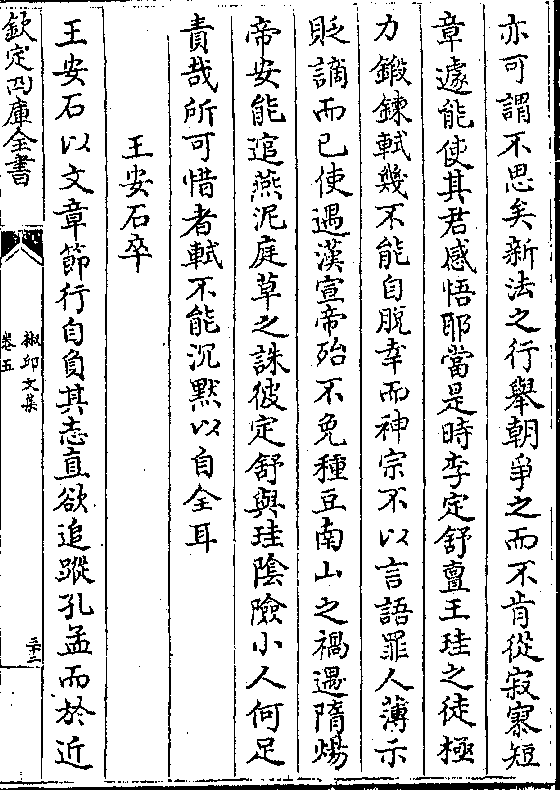 亦可謂不思矣新法之行舉朝爭之而不肯從寂寥短
章遽能使其君感悟耶當是時李定舒亶王珪之徒極
力鍛鍊軾幾不能自脫幸而神宗不以言語罪人薄示
貶謫而已使遇漢宣帝殆不免種豆南山之禍遇隋煬
帝安能逭燕泥庭草之誅彼定舒與珪陰險小人何足
責哉所可惜者軾不能沉默以自全耳
王安石卒
王安石以文章節行自負其志直欲追蹤孔孟而於近
欽定四庫全書
椒邱文集
卷五
三十二